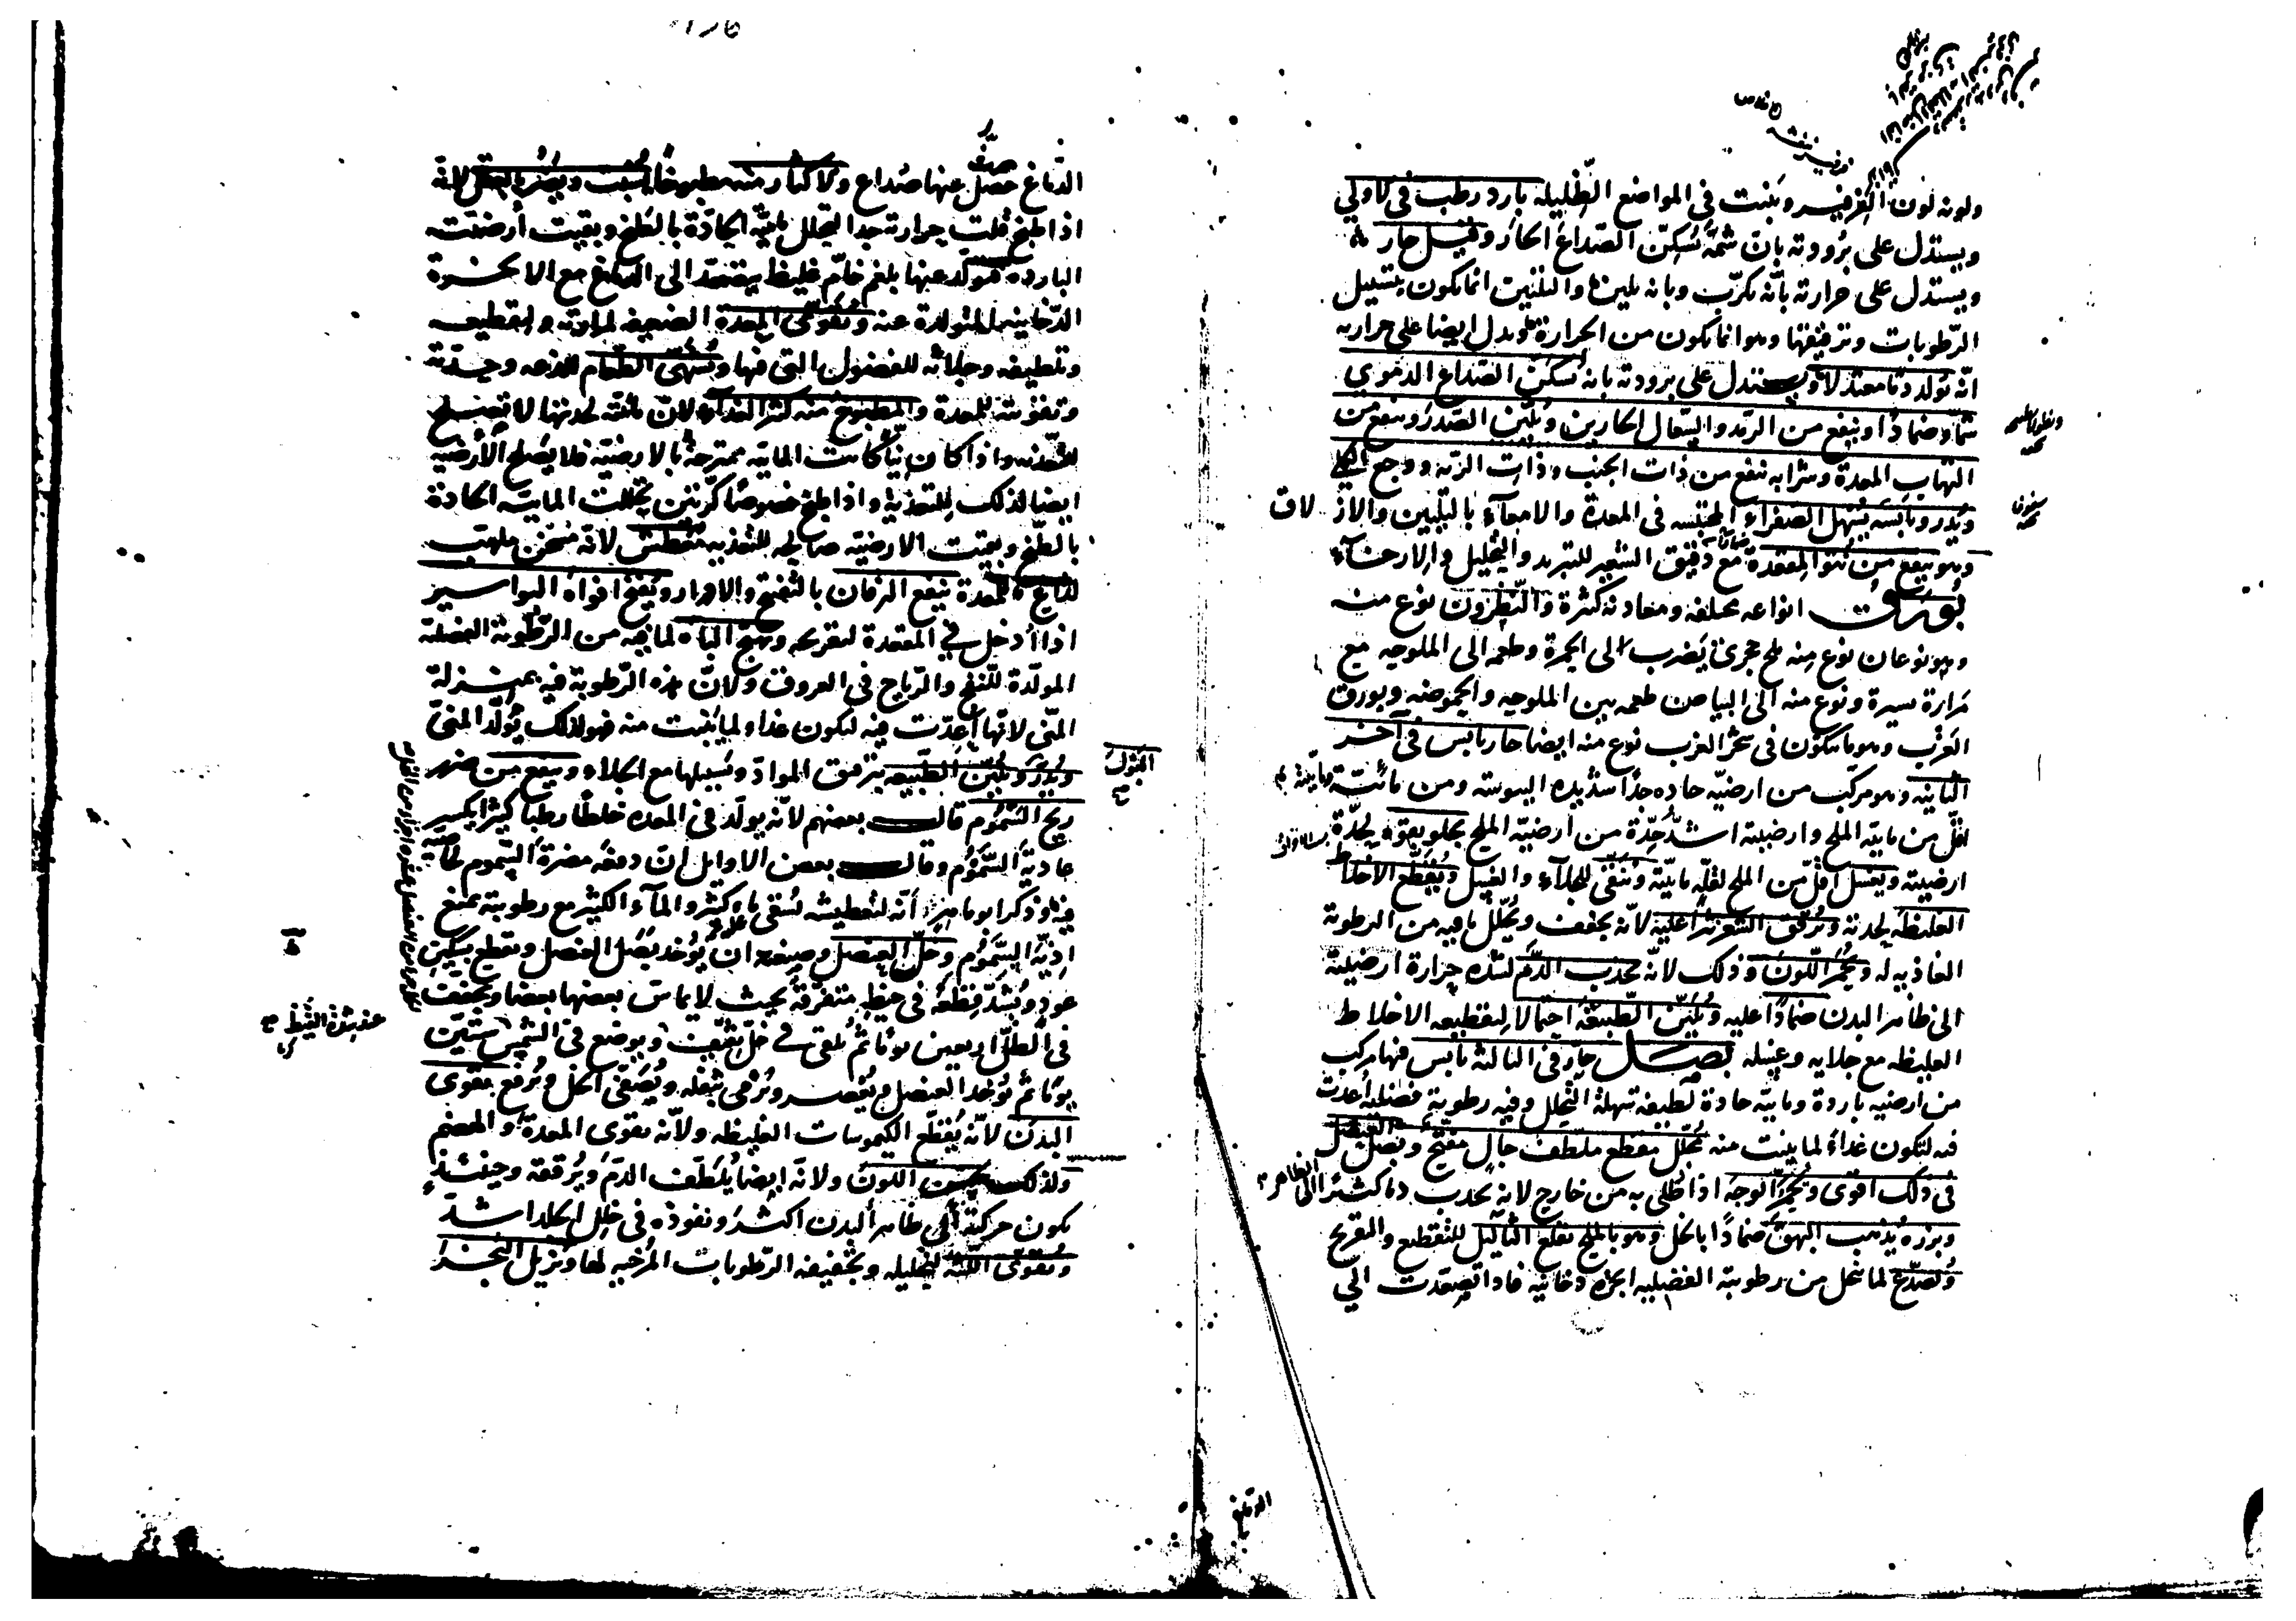 ولونه لون الفرفير وينبت في المواضع الظليله بارد رطب في الاولي
ويستدل على برودته بان شمه يسكن الصداع الحار وقيل حار
ويستدل على حرارته بانه يكرب وبانه يلين والتليين انما يكون بتسييل
الرطوبات وترقيقها وهو انما يكون من الحرارة ويدل ايضا على حرارته
انه يولد دما معتدلا ويستدل على برودته بانه يسكن الصداع الدموي
شما وضمادا وينفع من الرمد والسعال الحارين ويلين الصدر وينفع من
التهاب المعدة وشرابه ينفع من ذات الجنب وذات الرئه ووجع الكلي
ويدر ويابسه يسهل الصفراء المحتبسه في المعدة والامعاء بالتليين والازلاق
وهو ينفع من نتو المقعدة مع دقيق الشعير للتبريد والتحليل والارخاء
بورق انواعه مختلفه ومعادنه كثيرة والنطرون نوع منه
وهو نوعان نوع منه ملح حجري يضرب الى الحمرة وطعمه الى الملوحه مع
مرارة يسيرة ونوع منه الى البياض طعمه بين الملوحه والحموضه وبورق
الغرب وهو ما يتكون في شجر الغرب نوع منه ايضا حار يابس في آخر
الثانيه وهو مركب من ارضيه حاده جدا شديده اليبوسه ومن مائيه
اقل من مايية الملح وارضيته اشد حدة من ارضية الملح يجلو بقوة لحدة
ارضيته ويغسل اقل من الملح لقلة ماييته وينقي للجلاء والغسل ويقطع الاخلاط
الغليظه لحدته ويرقق الشعر نثرا عليه لانه يجفف ويحلل ما فيه من الرطوبة
الغاذيه له ويحمر اللون وذلك لانه يجذب الدم لشده حرارة ارضيته
الى ظاهر البدن ضمادا عليه ويلين الطبيعة احتمالا لتقطيعه الاخلاط
الغليظه مع جلايه وغسله بصل حار في الثالثه يابس فيها مركب
من ارضيه باردة ومايية حادة لطيفه سهلة التحلل وفيه رطوبة فضلية اعدت
فيه لتكون غذاء لما ينبت منه محلل مقطع ملطف جال مفتح وبصل العنصل
في ذلك اقوى ويحمر الوجه اذا طلي به من خارج لانه يجذب دما كثيرا الى الظاهر
وبزره يذهب البهق ضمادا بالخل وهو بالملح يقلع الثآليل للتقطيع والتقريح
ويصدع لما يتحلل من رطوبته الفضليه ابخرة دخانيه فاذا تصعدت الي
الدماغ حصل عنها صداع والاكثار منه مطبوخا يسبت ويضر بالعقل لانه
اذا طبخ قلت حرارته جدا لتحلل مائيته الحادة بالطبخ وبقيت ارضيته
الباردة فيتولد عنها بلغم خام غليظ يتصعد الى الدماغ مع الابخرة
الدخانيه المتولدة عنه ويقوي المعدة الضعيفه لمرارته ولتقطيعه
وتلطيفه وجلائه للفضول التي فيها ويشهي الطعام للذعه وحدته
وتقويته للمعدة والمطبوخ منه كثير الغذاء لان مائيته لحدتها لا تصلح
للتغذيه واذا كان نيا كانت المائية ممتزجة بالارضية فلا يصلح الارضيه
ايضا لذلك للتغذية واذا طبخ خصوصا كرتين تحللت المايية الحادة
بالطبخ وبقيت الارضيه صالحه للتغذيه معطش لانه مسخن ملهب
لذاع للمعدة ينفع اليرقان بالتفتيح والادرار ويفتح افواه البواسير
اذا ادخل في المقعدة لتقريحه ويهيج الباه لما فيه من الرطوبة الفضلية
المولدة للنفخ والرياح في العروق ولان هذه الرطوبة فيه بمنزلة
المني لانها اعدت فيه لتكون غذاء لما ينبت منه فهو لذلك يولد المني
ويدر ويلين الطبيعه بترقيق المواد وتسييلها مع الجلاء وينفع من ضرر
ريح السموم قال بعضهم لانه يولد في المعده خلطا رطبا كثيرا يكسر
عادية السموم وقال بعض الاوايل ان دفعه مضرة السموم لخاصيه
فيه وذكر ابو ماهر انه لتعطيشه يسقى ماء كثير والماء الكثير مع رطوبته يمنع
اذية السموم وخل العنصل وصنعته ان يؤخذ بصل العنصل ويقطع بسكين
عود ويشد قطعه في خيط متفرقة بحيث لا يماس بعضها بعضا ويجفف
في الظل اربعين يوما ثم يلقى في خل ثقيف ويوضع في الشمس ستين
يوما ثم يؤخذ العنصل ويعصر ويرمى بثفله ويصفى الخل ويرفع يقوى
البدن لانه يقطع الكيموسات الغليظه ولانه يقوى المعدة والهضم
ولذلك يحسن اللون ولانه ايضا يلطف الدم ويرققه وحينئذ
يكون حركته الى ظاهر البدن اكثر ونفوذه في خلل الجلد اشد
ويقوي اللثة لتحليله وتجفيفه الرطوبات المرخيه لها ويزيل البخر